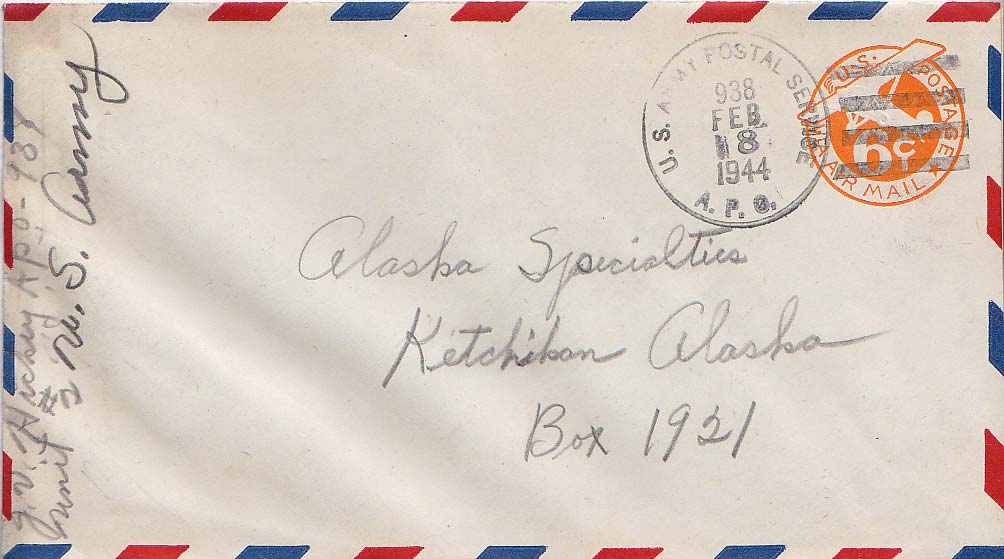 J. V. Hickey APO-938
Unit #2 U. S. Army
U.S. ARMY POSTAL SERVICE
938
FEB
8
1944
A. P. O.
U.S. POSTAGE
6¢
VIA AIR MAIL
Alaska Specialties
Ketchikan Alaska
Box 1921